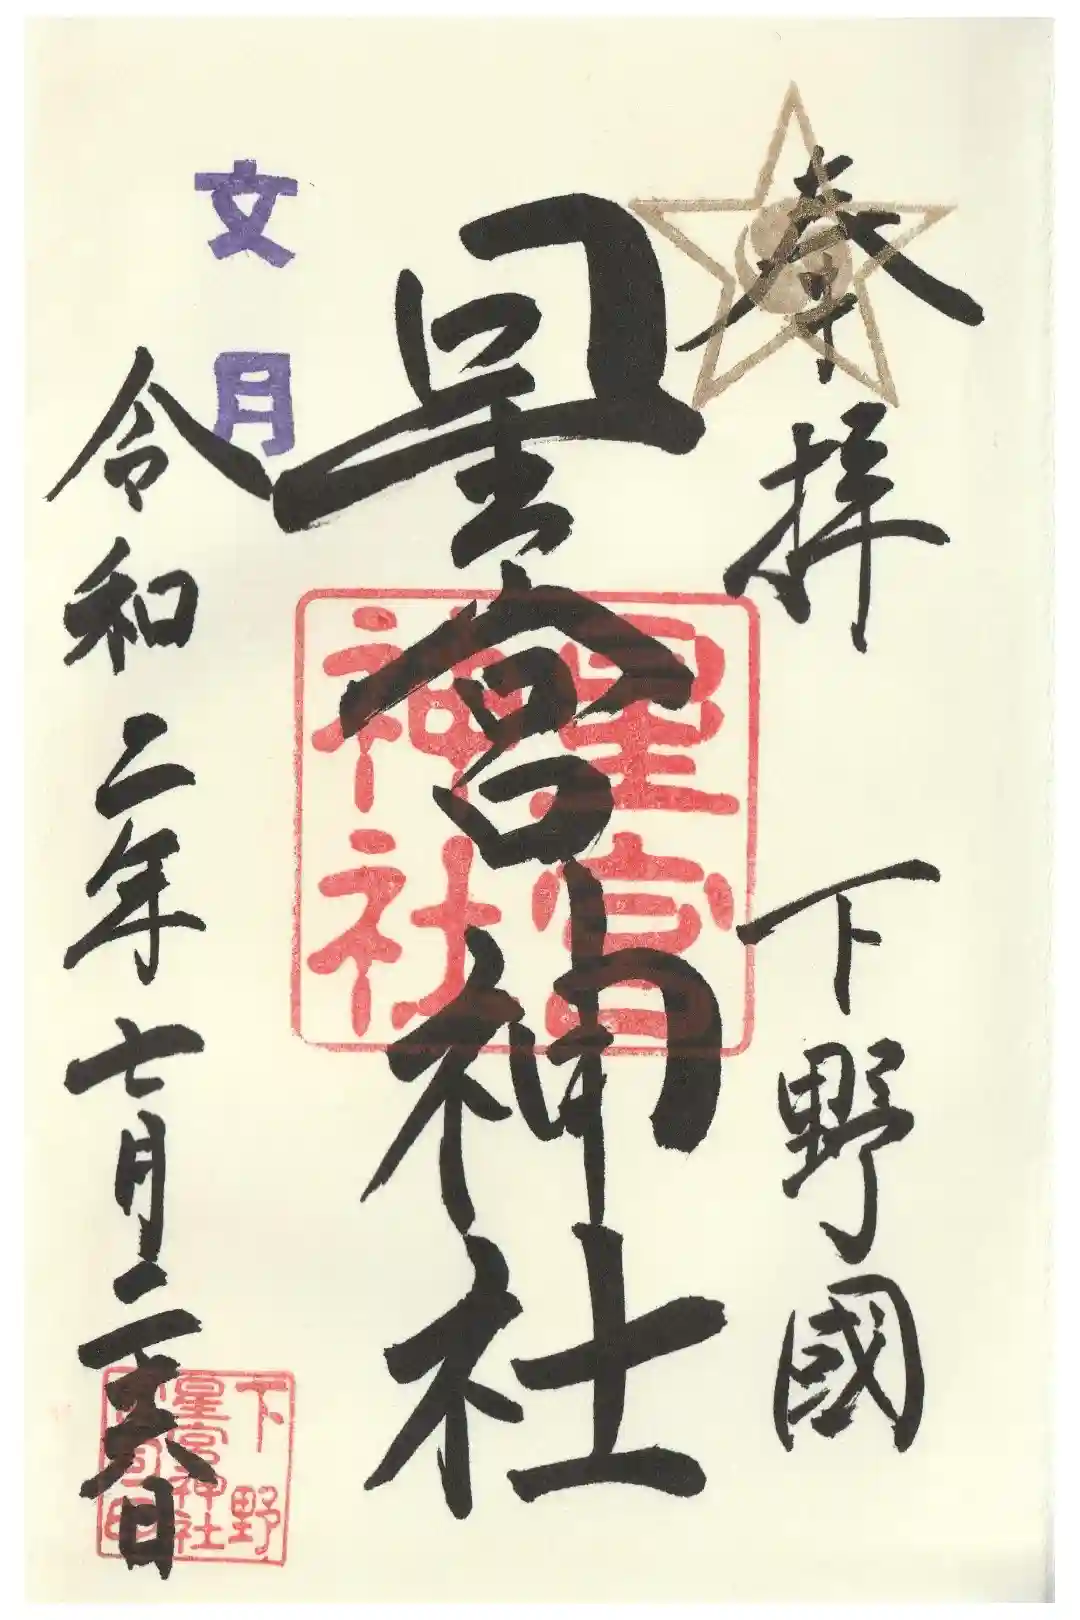 奉拝
下野國
星宮神社
星宮
神社
文月
令和二年七月二十六日
下野
星宮神社